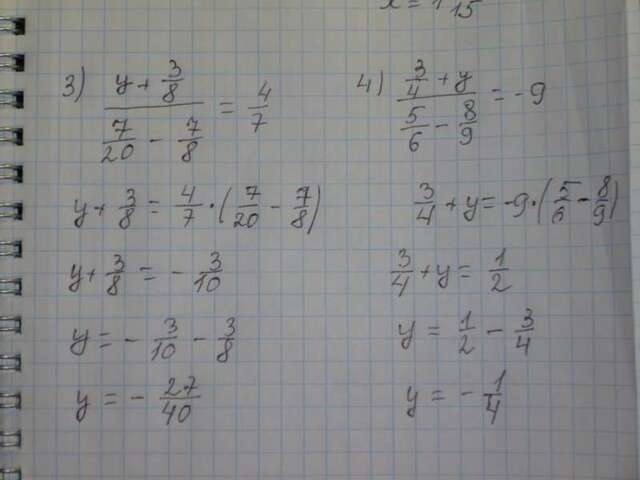 x = 1 1/15
3) (y + 3/8) / (7/20 - 7/8) = 4/7
y + 3/8 = 4/7 · (7/20 - 7/8)
y + 3/8 = - 3/10
y = - 3/10 - 3/8
y = - 27/40
4) (3/4 + y) / (5/6 - 8/9) = -9
3/4 + y = -9 · (5/6 - 8/9)
3/4 + y = 1/2
y = 1/2 - 3/4
y = - 1/4